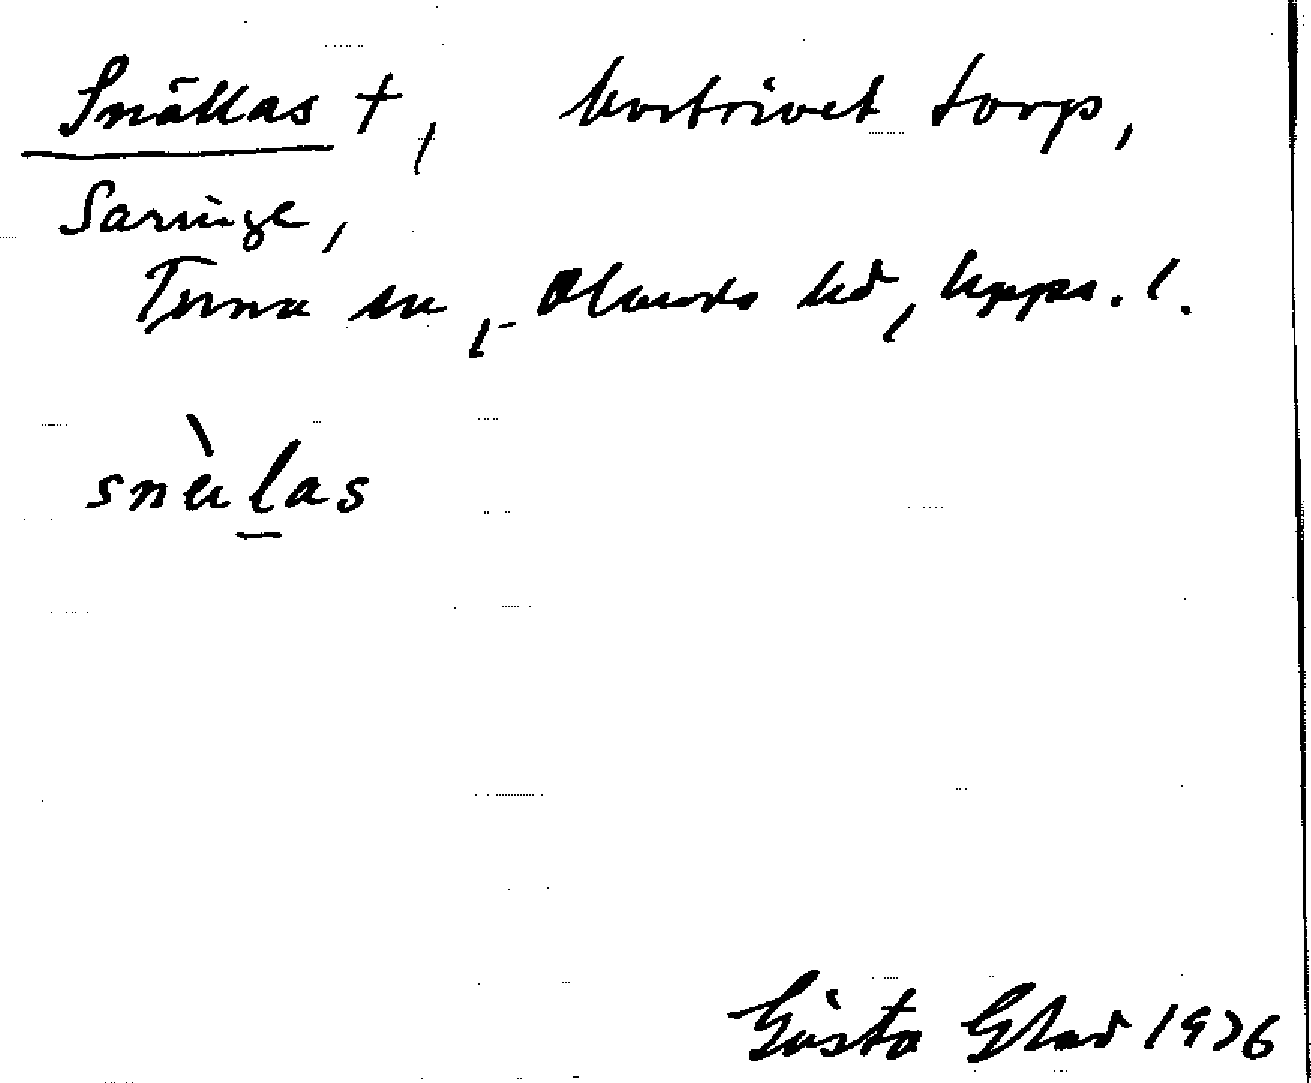 Snällas †, bortrivet torp,
Saringe,
Tuna sn, Olands hd, Upps. l.
snälas
Gösta Glad 1976